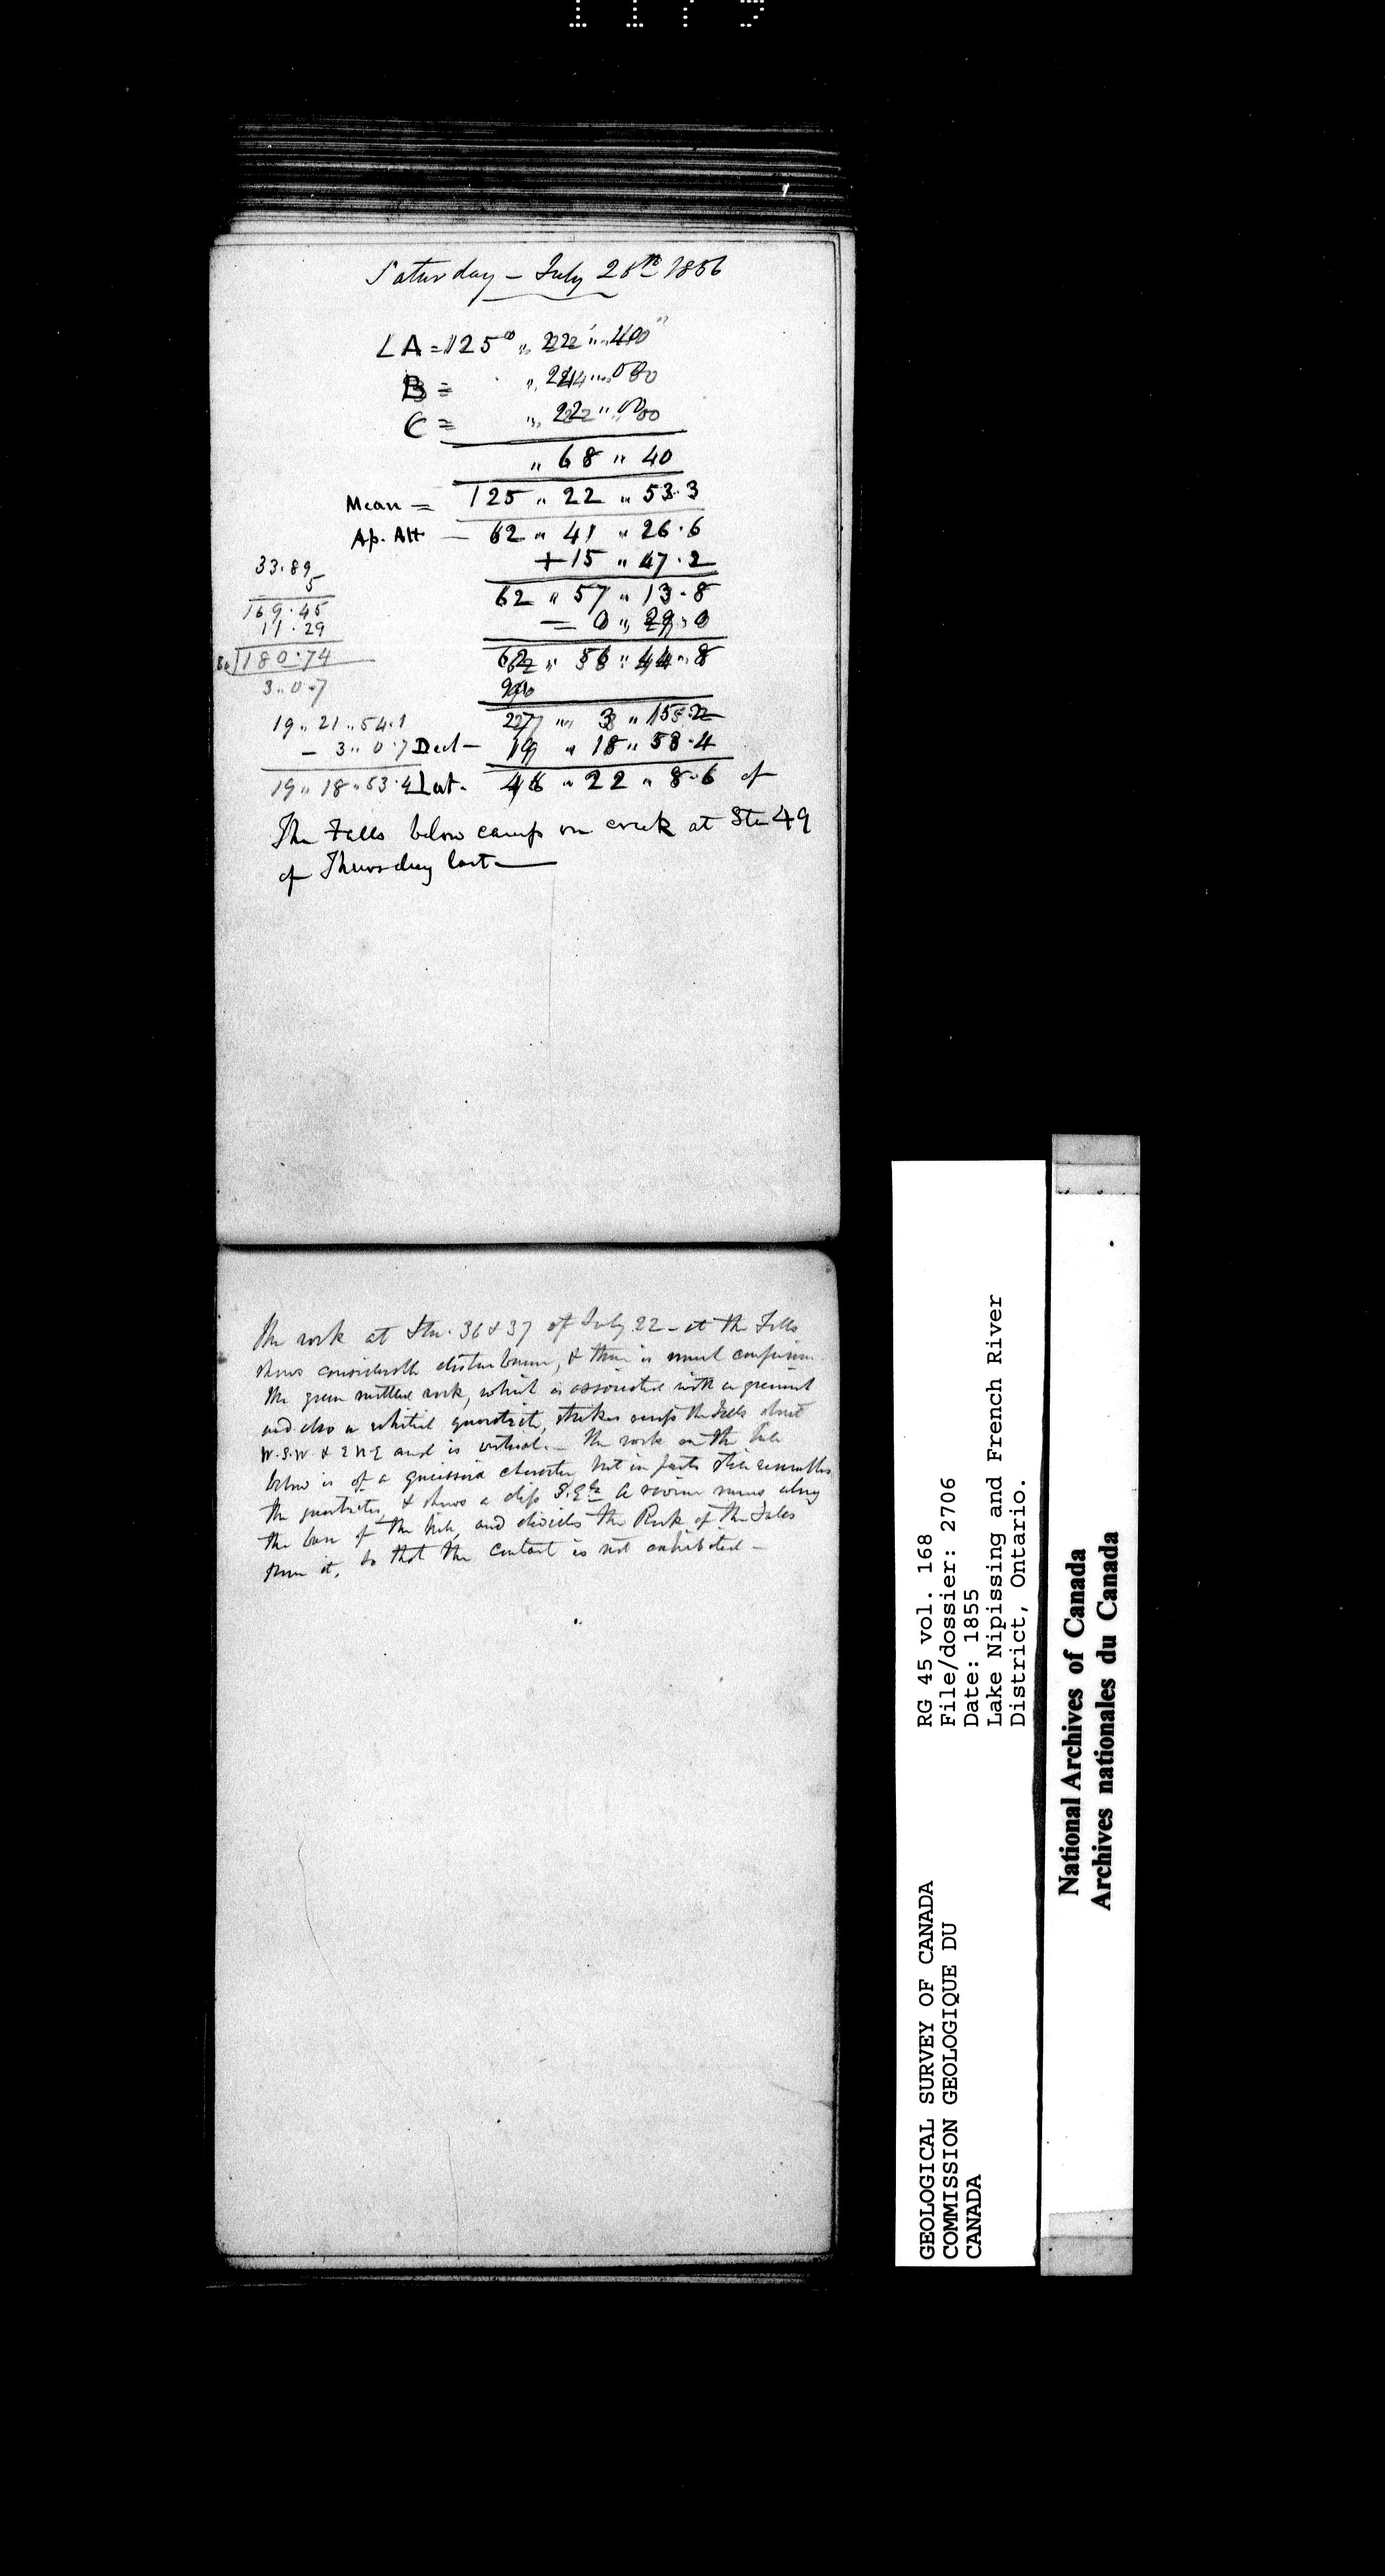 1173
Saturday - July 28th 1856
LA = 125° " 22' " 40"
B = " 24 " 00
C = " 22 " 00
" 68 " 40
Mean = 125 " 22 " 53.3
Ap. Alt - 62 " 41 " 26.6
+ 15 " 47.2
62 " 57 " 13.8
- 0 " 29.0
62 " 56 " 44.8
90
27 " 3 " 15.2
Decl - 19 " 18 " 53.4
Lat. 46 " 22 " 8.6 of
33.89
5
169.45
11.29
60 180.74
3 " 0.7
19 " 21 " 54.1
- 3 " 0.7
19 " 18 " 53.4
The Falls below camp on creek at Stn 49
of Thursday last
The rock at Stn. 36 & 37 of July 22 - at the Falls
shows considerable disturbance, & there is much confusion
The green rock, which is associated with a
and also a whitish quartzite, strikes across the Falls about
W.S.W & E N E and is vertical. - The rock on the hill
below is of a gneissoid character but in parts still resembles
the quartzite, & shows a dip S.E. A ravine runs along
the base of the hill, and divides the Rock of the Falls
from it, so that the contact is not exhibited -
RG 45 vol. 168
File/dossier: 2706
Date: 1855
Lake Nipissing and French River
District, Ontario.
GEOLOGICAL SURVEY OF CANADA
COMMISSION GEOLOGIQUE DU
CANADA
National Archives of Canada
Archives nationales du Canada